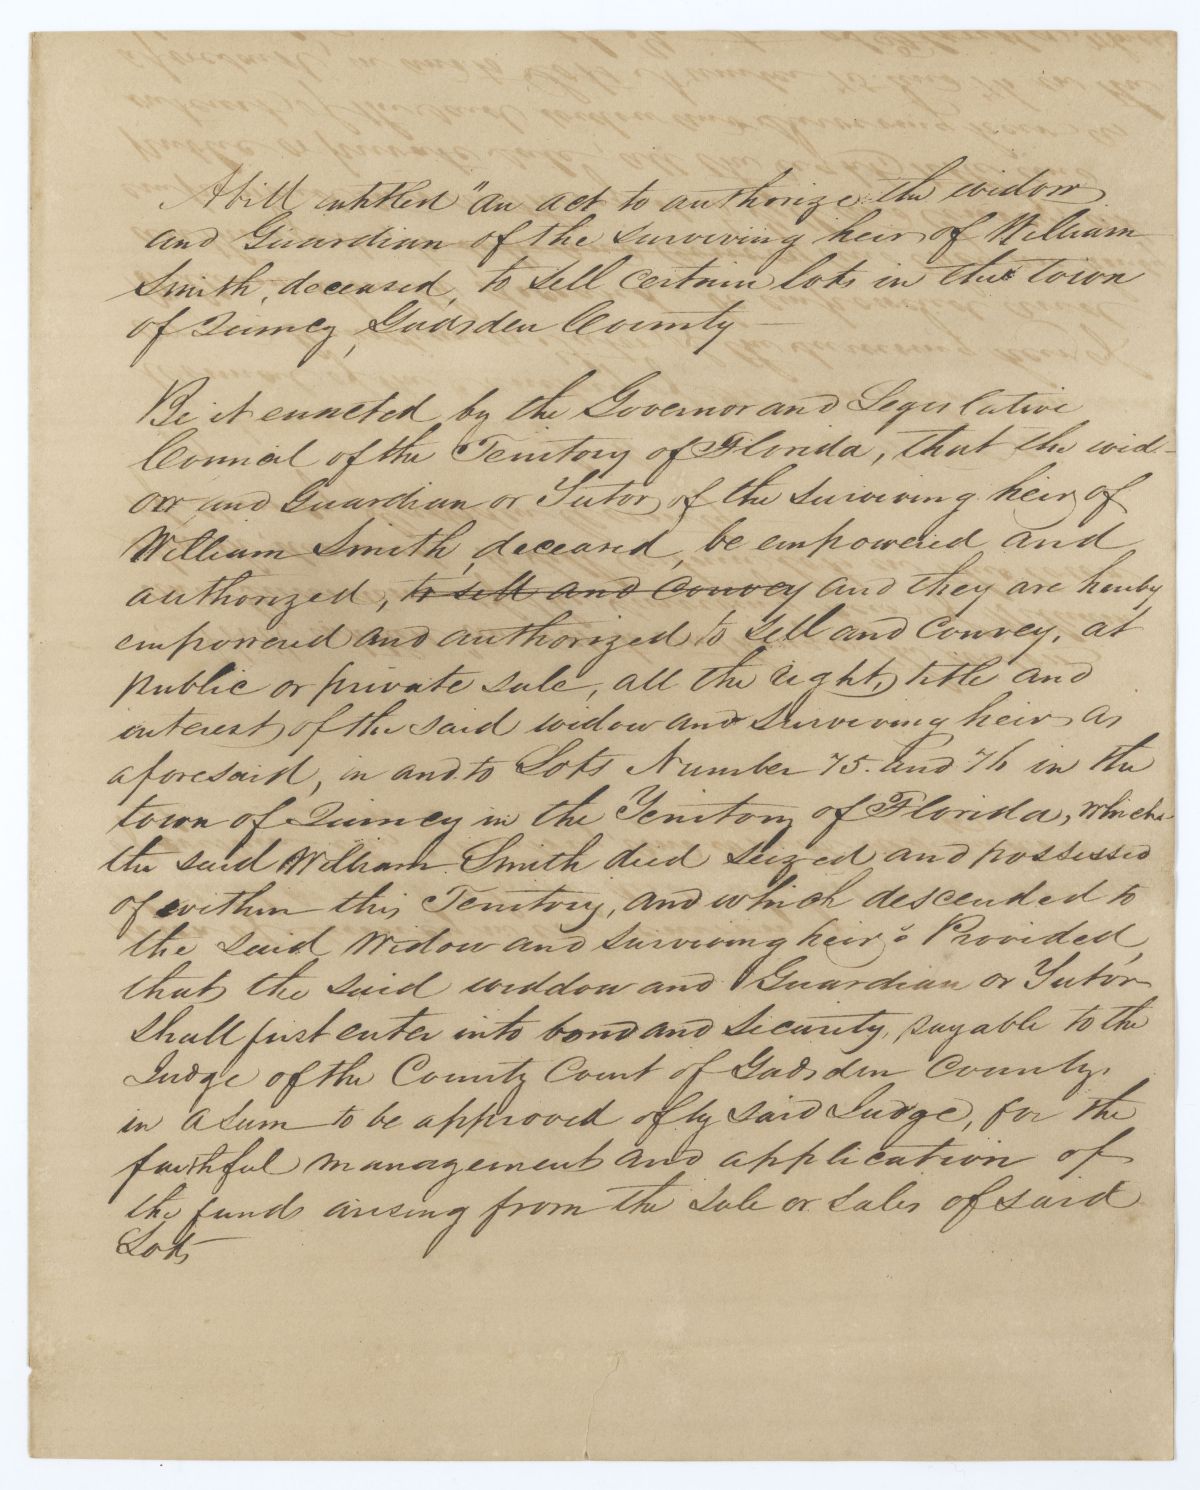 A bill entitled "an act to authorize the widow
and Guardian of the surviving heir of William
Smith, deceased, to sell certain lots in the town
of Quincy, Gadsden County —
Be it enacted by the Governor and Legislative
Council of the Territory of Florida, that the wid-
ow and Guardian or Tutor of the surviving heir of
William Smith, deceased, be empowered and
authorized, to sell and convey and they are hereby
empowered and authorized to sell and convey, at
public or private sale, all the right, title and
interest of the said widow and surviving heir as
aforesaid, in and to Lots Number 75. and 76 in the
town of Quincy in the Territory of Florida, which
the said William Smith died seized and possessed
of within this Territory, and which descended to
the said Widow and surviving heir: Provided,
that the said widdow and Guardian or Tutor
shall first enter into bond and security, payable to the
Judge of the County Court of Gadsden County.
in a sum to be approved of by said Judge, for the
faithful management and application of
the funds arising from the sale or sales of said
Lots